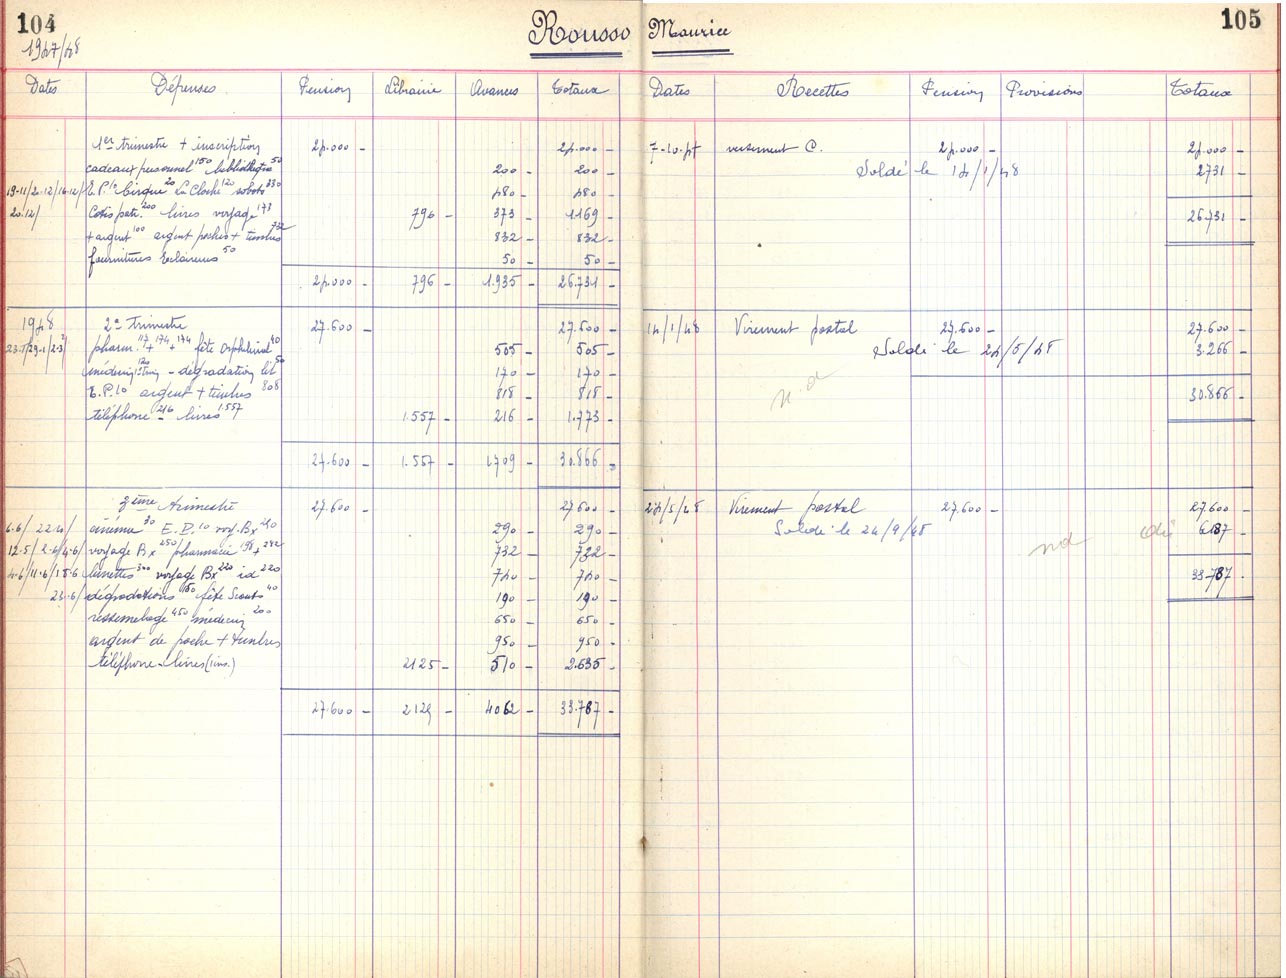 104
1947/48
Rousso Maurice
105
Dates Dépenses Pension Librairie Avances Totaux Dates Recettes Pension Provisions Totaux
1er trimestre + inscription 24.000 - 24.000 - 7-10-47 versement C. 24.000 - 24.000 -
cadeaux personnel 150 bibliothèque 50 200 - 200 - Soldé le 14/1/48 2731 -
19-11/2-12/16-12/ E.P. 10 Cirque 20 La Cloche 120 sabots 330 480 - 480 -
20.12/ Cotis pati. 200 livres voyage 173 796 - 373 - 1169 - 26.731 -
+ argent 100 argent poches + timbres 732 832 - 832 -
fournitures Eclaireurs 50 50 - 50 -
24.000 - 796 - 1.935 - 26.731 -
1948 2e Trimestre 27.600 - 27.600 - 14/1/48 Virement postal 27.600 - 27.600 -
pharm. 117 + 174 + 174 fête orphelinat 40 505 - 505 - Soldé le 24/5/48 3.266 -
médecin 120 - dégradation lit 50 170 - 170 -
E.P. 10 argent + timbres 808 818 - 818 - n.d 30.866 -
téléphone 216 livres 1.557 1.557 - 216 - 1.773 -
27.600 - 1.557 - 1709 - 30.866 -
3ème trimestre 27.600 - 27.600 - 24/5/48 Virement postal 27.600 - 27.600 -
cinéma 30 E.P. 10 voy. Bx 250 290 - 290 - Soldé le 24/9/48 nd 6187 -
12.5/2.6/4.6/ voyage Bx 250/ pharmacie 198 + 282 732 - 732 -
4.6/11.6/15.6 lunettes 300 voyage Bx 220 id 220 740 - 740 - 33.787 -
23.6/ dégradations 150 fête Scouts 40 190 - 190 -
ressemelage 450 médecin 200 650 - 650 -
argent de poche + timbres 950 - 950 -
téléphone - livres (ins.) 2125 - 510 - 2.635 -
27.600 - 2125 - 4062 - 33.787 -